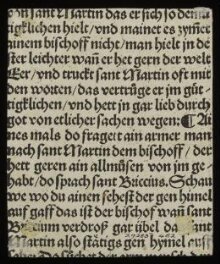 sant Martin das er sich so demü
tigklichen hielt/vnd mainet es zymet
ainem bischoff nicht/man hielt in de
ster leichter wañ er het gern der welt
Eer/vnd truckt sant Martin oft mit
den worten/das vertrůge er jm gůt-
tigklichen/vnd hett jn gar lieb durch
got von etlicher sachen wegen: ¶ Ai
nes mals do fraget ain armer man
nach sant Martin dem bischoff/der
hett geren ain allmůsen von jm ge-
habt/do sprach sant Briccius. Schau
we wo du ainen sehest der gen himel
auf gaff das ist der bischof wañ sant
verdroß gar übel das sant
Martin also stätigs gen hymel auff